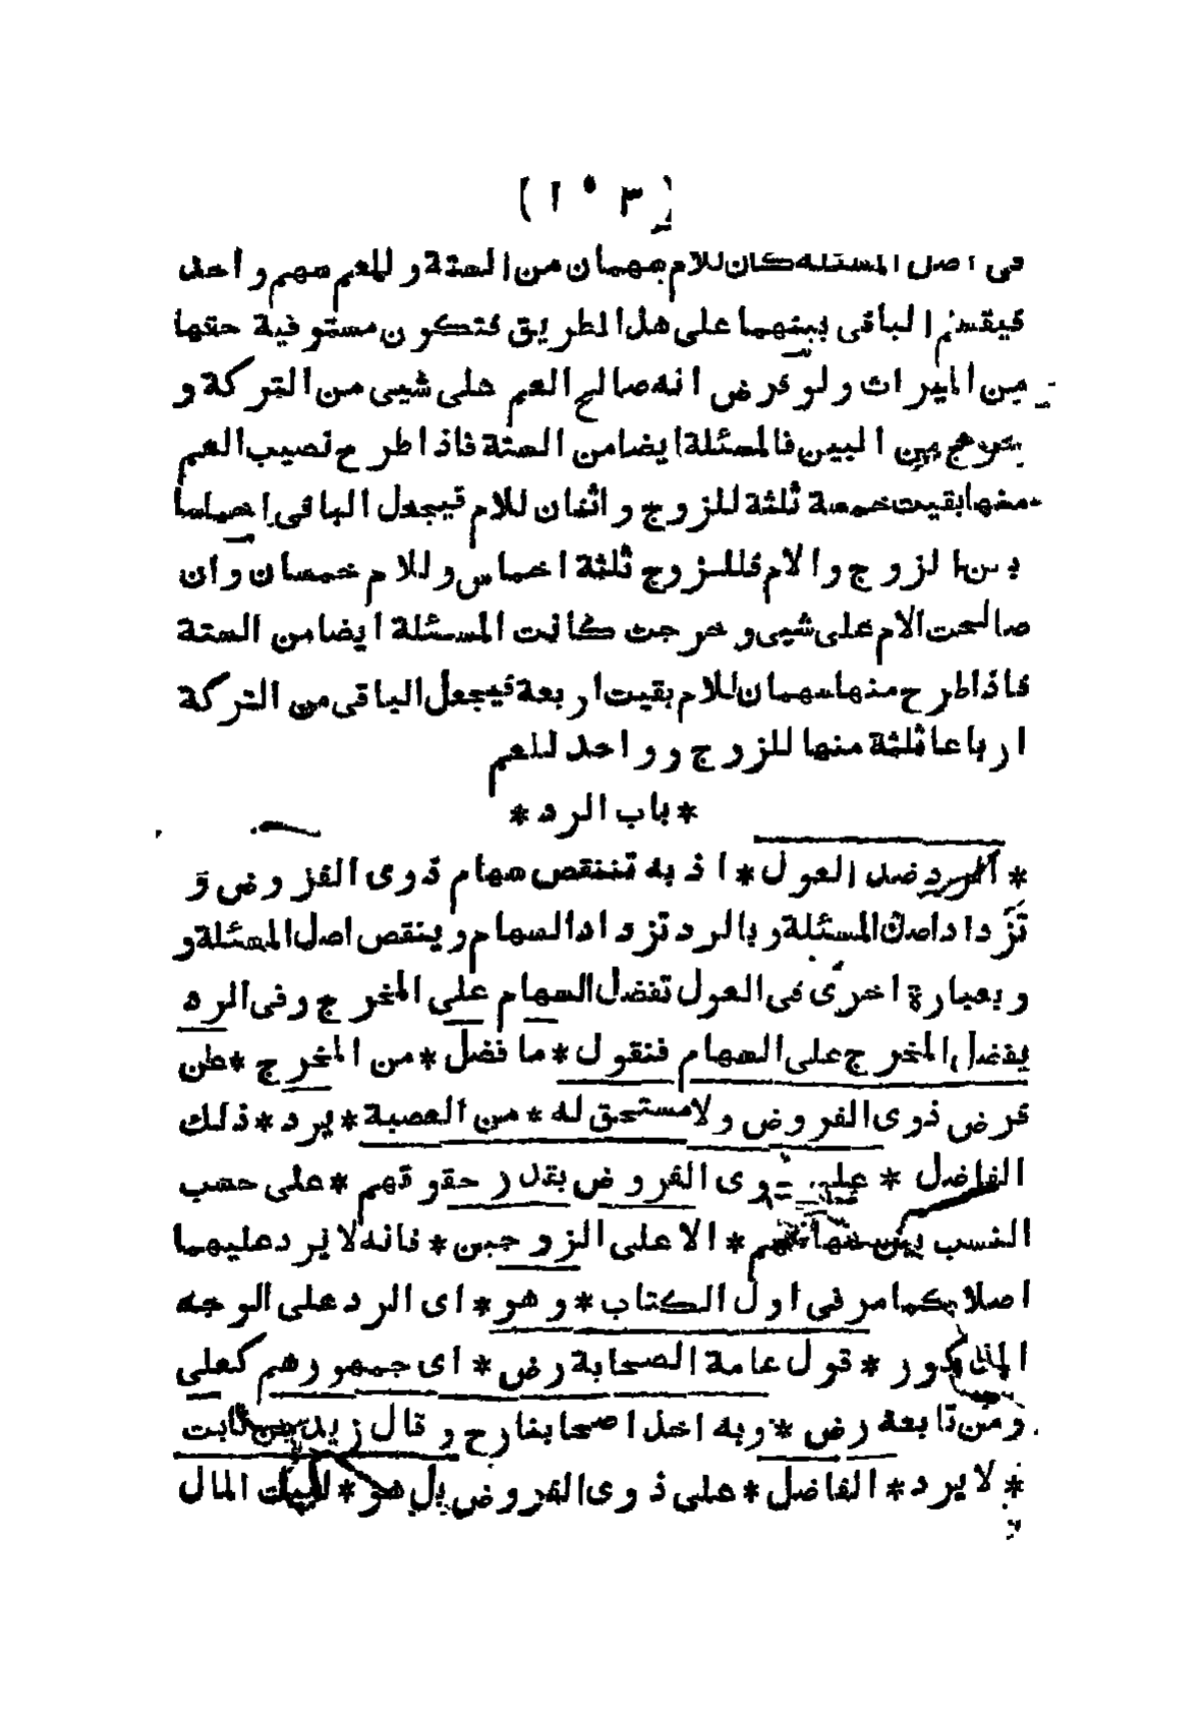 ( ١٠٣ )
فى اصل المسئلة كان للام سهمان من الستة وللعم سهم واحد
فيقسم الباقى بينهما على هذا الطريق فتكون مستوفية حقها
من الميراث ولو فرض انه صالح العم على شيى من التركة و
خرج من البين فالمسئلة ايضا من الستة فاذا طرح نصيب العم
منها بقيت خمسة ثلثة للزوج واثنان للام فيجعل الباقى اخماسا
بين الزوج والام فللزوج ثلثة اخماس وللام خمسان وان
صالحت الام على شيى وخرجت كانت المسئلة ايضا من الستة
فاذا طرح منها سهمان للام بقيت اربعة فيجعل الباقى من التركة
ارباعا ثلثة منها للزوج وواحد للعم
* باب الرد *
* الرد ضد العول * اذ به تنتقص سهام ذوى الفروض و
تزداد اصل المسئلة وبالرد تزداد السهام وينقص اصل المسئلة و
وبعبارة اخرى فى العول تفضل السهام على المخرج وفى الرد
يفضل المخرج على السهام فنقول * ما فضل * من المخرج * عن
فرض ذوى الفروض ولا مستحق له * من العصبة * يرد * ذلك
الفاضل * على ذوى الفروض بقدر حقوقهم * على حسب
النسب بين سهامهم * الا على الزوجين * فانه لا يرد عليهما
اصلا كما مر فى اول الكتاب * وهو * اى الرد على الوجه
المذكور * قول عامة الصحابة رض * اى جمهورهم كعلى
ومن تابعه رض * وبه اخذ اصحابنا رح وقال زيد بن ثابت
* لا يرد * الفاضل * على ذوى الفروض بل هو * لبيت المال